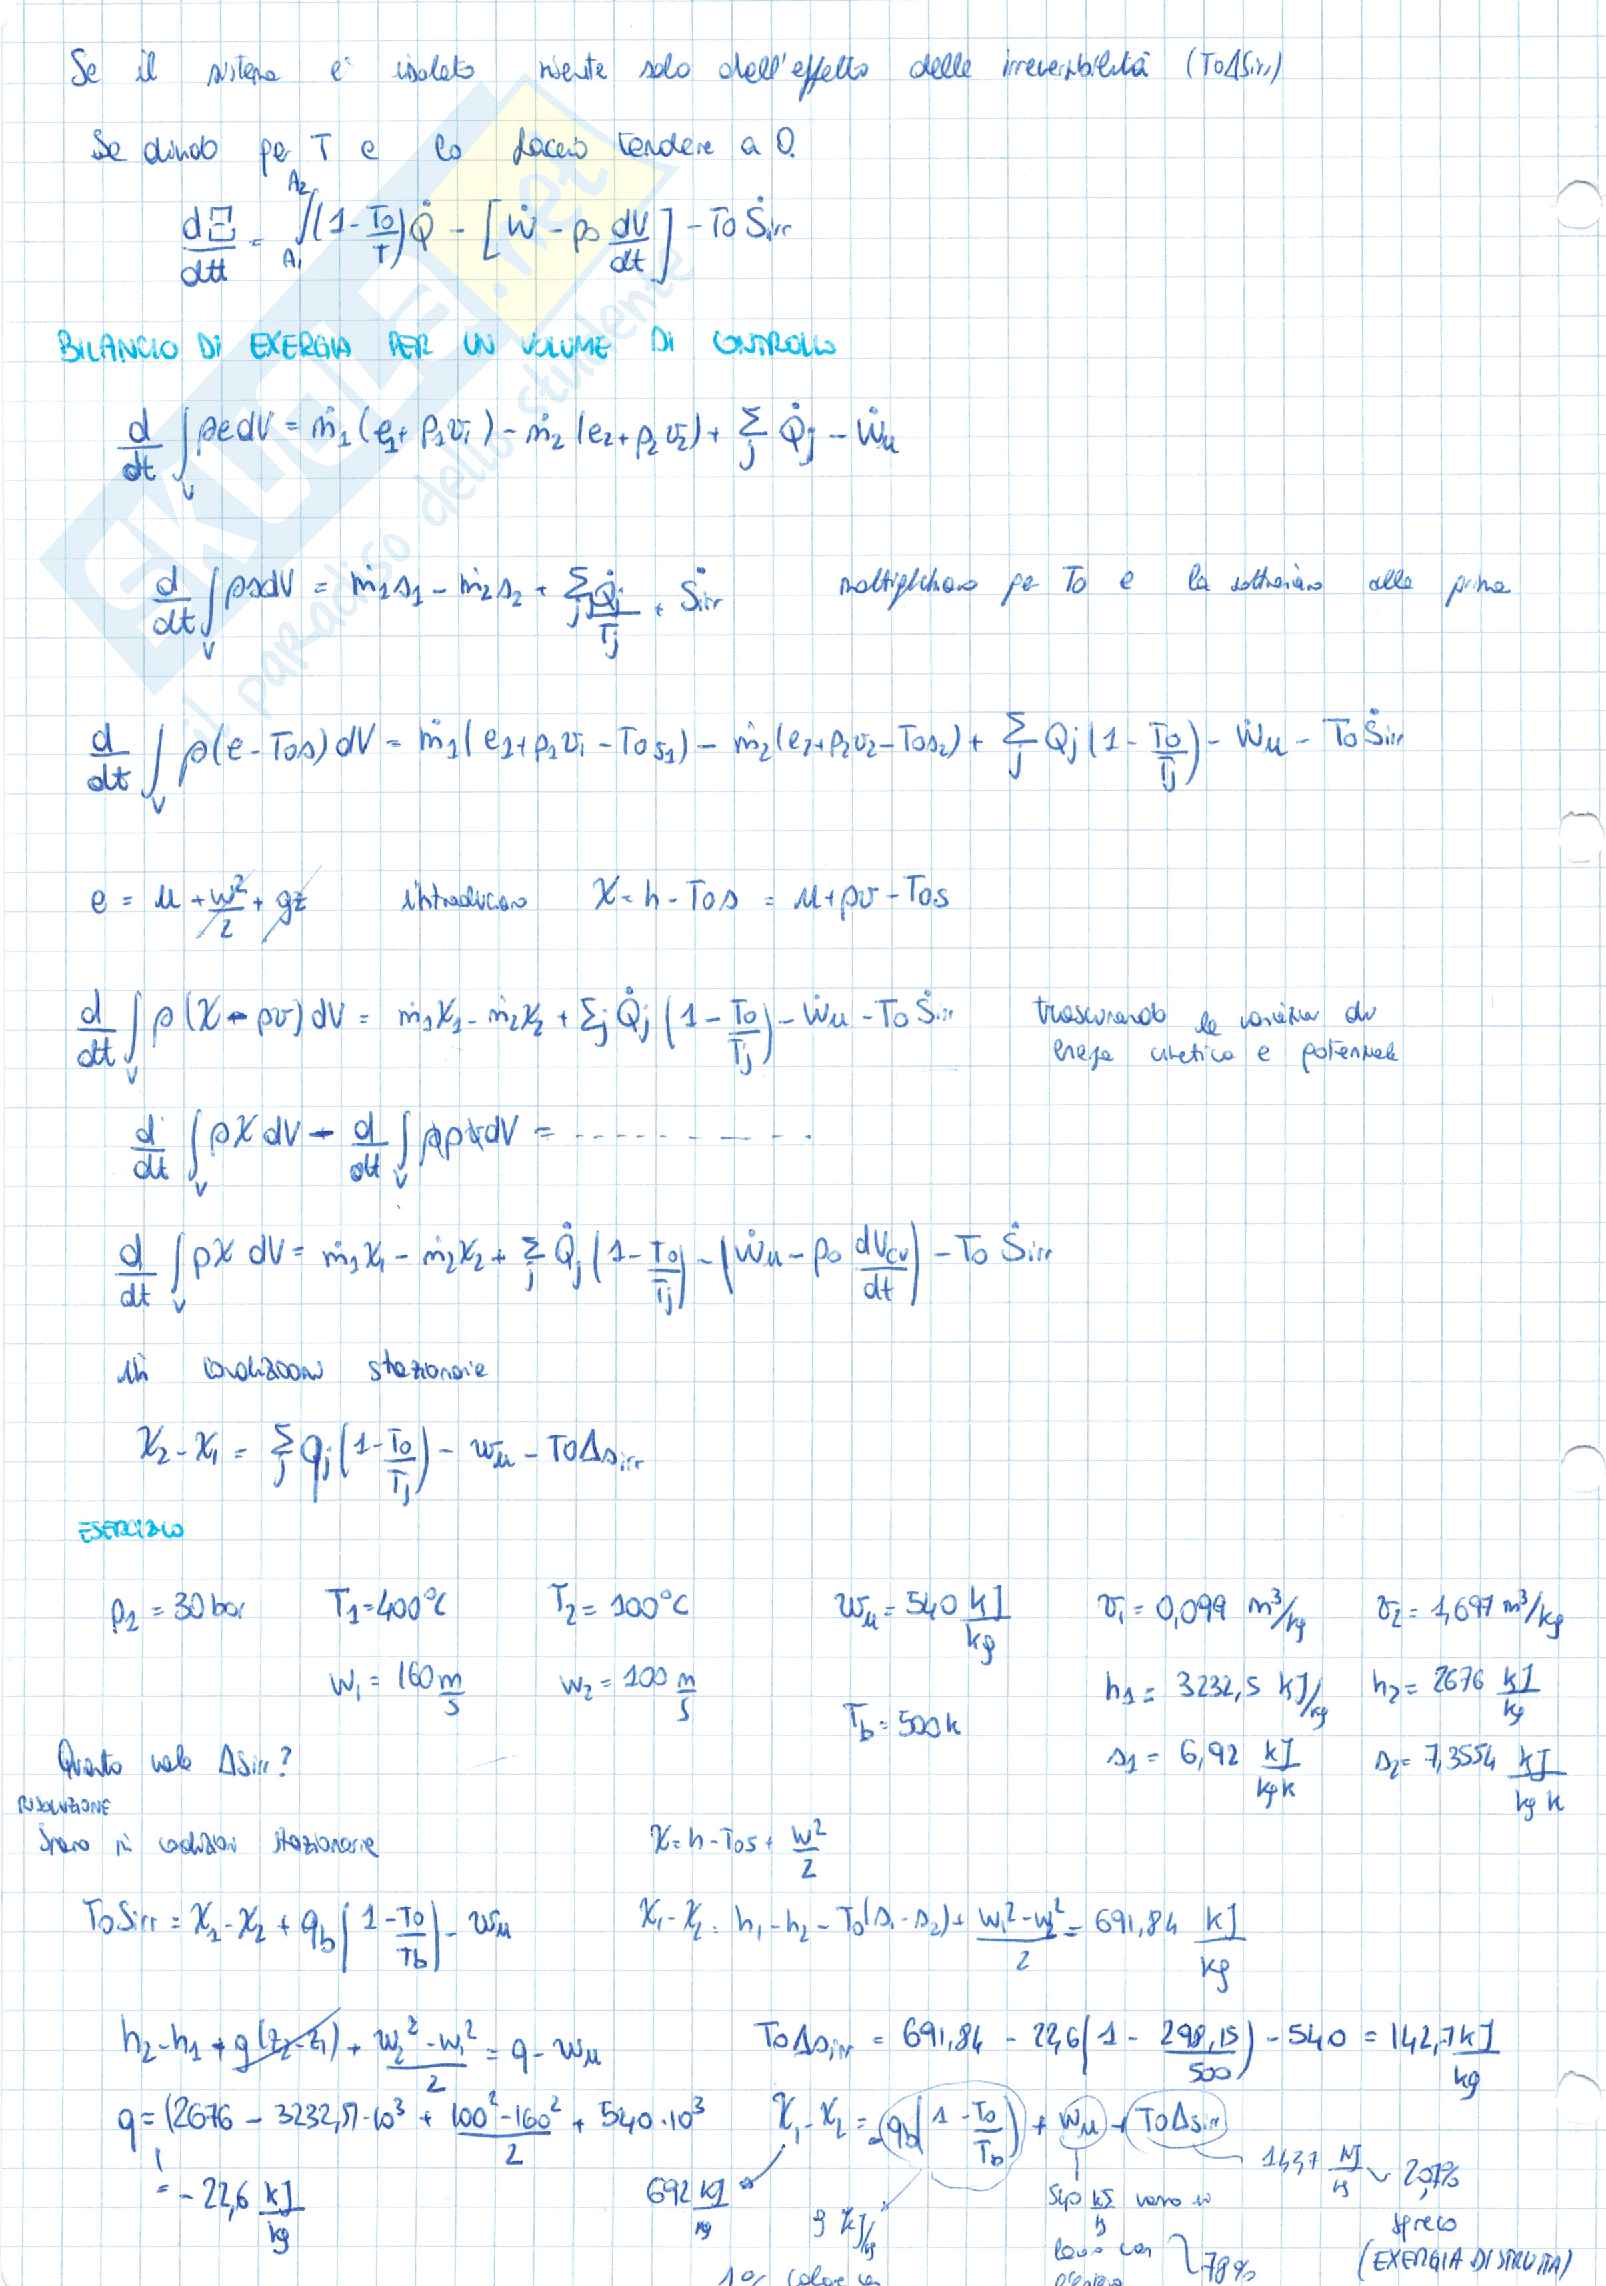 Se il sistema è isolato risente solo dell'effetto delle irreversibilità (T0ΔSirr)
Se divido per T e lo faccio tendere a 0.
dΞ/dt = ∫A1^A2 (1 - T0/T) Q̇ - [Ẇ - p0 dV/dt] - T0 Ṡirr
BILANCIO DI EXERGIA PER UN VOLUME DI CONTROLLO
d/dt ∫V ρe dV = ṁ1(e1 + p1v1) - ṁ2(e2 + p2v2) + Σj Q̇j - Ẇu
d/dt ∫V ρs dV = ṁ1s1 - ṁ2s2 + Σj Q̇j/Tj + Ṡirr moltiplichiamo per T0 e la sottraiamo alla prima
d/dt ∫V ρ(e - T0s) dV = ṁ1(e1 + p1v1 - T0s1) - ṁ2(e2 + p2v2 - T0s2) + Σj Qj(1 - T0/Tj) - Ẇu - T0Ṡirr
e = u + w²/2 + gz introduciamo χ = h - T0s = u + pv - T0s
d/dt ∫V ρ(χ - pv) dV = ṁ1χ1 - ṁ2χ2 + Σj Q̇j (1 - T0/Tj) - Ẇu - T0 Ṡirr trascurando le variazioni di
energia cinetica e potenziale
d/dt ∫V ρχ dV - d/dt ∫V ρpv dV = - - - - - - - - -
d/dt ∫V ρχ dV = ṁ1χ1 - ṁ2χ2 + Σj Q̇j (1 - T0/Tj) - (Ẇu - p0 dVcv/dt) - T0 Ṡirr
in condizioni stazionarie
χ2 - χ1 = Σj qj (1 - T0/Tj) - wu - T0Δsirr
ESERCIZIO
p1 = 30 bar T1 = 400°C T2 = 100°C wu = 540 kJ/kg v1 = 0,099 m³/kg v2 = 1,697 m³/kg
w1 = 160 m/s w2 = 100 m/s Tb = 500 k h1 = 3232,5 kJ/kg h2 = 2676 kJ/kg
Quanto vale ΔSirr? s1 = 6,92 kJ/kgK s2 = 7,3554 kJ/kg K
RISOLUZIONE
Siamo in condizioni stazionarie χ = h - T0s + w²/2
T0Sirr = χ1 - χ2 + qb (1 - T0/Tb) - wu χ1 - χ2 = h1 - h2 - T0(s1 - s2) + (w1² - w2²)/2 = 691,84 kJ/kg
h2 - h1 + g(z2 - z1) + (w2² - w1²)/2 = q - wu T0Δsirr = 691,84 - 22,6 (1 - 298,15/500) - 540 = 142,7 kJ/kg
q = (2676 - 3232,5)·10³ + (100² - 160²)/2 + 540·10³ χ1 - χ2 = -qb (1 - T0/Tb) + wu + T0Δsirr
= -22,6 kJ/kg 692 kJ/kg 9 kJ/kg kJ/kg vanno in
spreco
78%
(EXERGIA DISTRUTTA)
SKUOLA.net
il paradiso dello studente